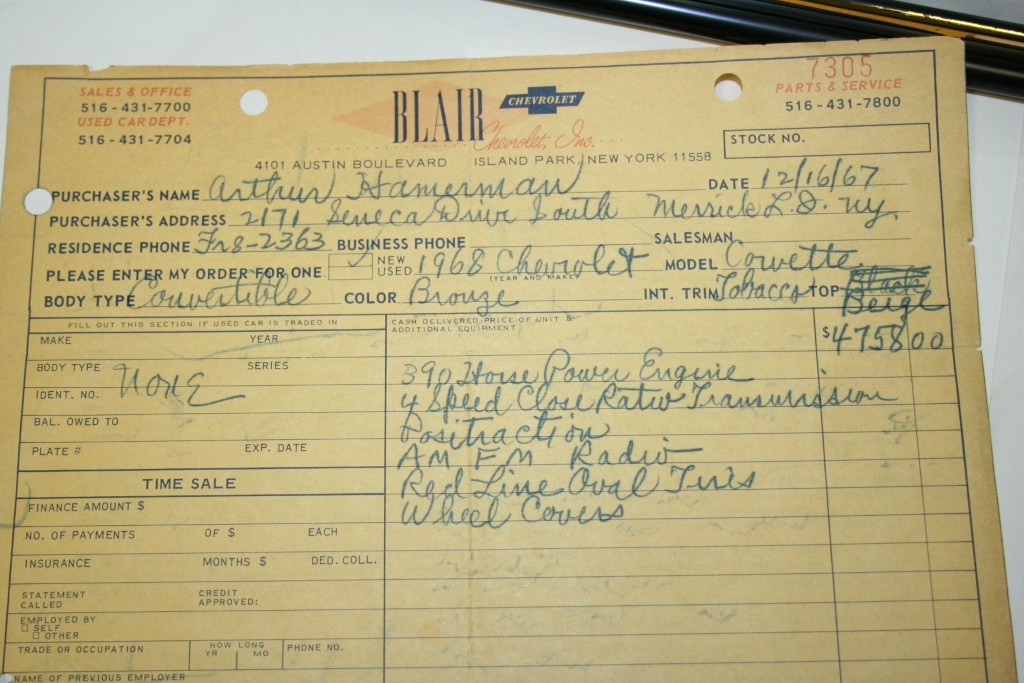 SALES & OFFICE
516-431-7700
USED CAR DEPT.
516-431-7704
BLAIR CHEVROLET
Chevrolet, Inc.
7305
PARTS & SERVICE
516-431-7800
4101 AUSTIN BOULEVARD ISLAND PARK, NEW YORK 11558
STOCK NO.
PURCHASER'S NAME Arthur Hamerman DATE 12/16/67
PURCHASER'S ADDRESS 2171 Seneca Drive South Merrick L.I. NY.
RESIDENCE PHONE Fr8-2363 BUSINESS PHONE SALESMAN
PLEASE ENTER MY ORDER FOR ONE ✓ NEW USED 1968 Chevrolet (YEAR AND MAKE) MODEL Corvette
BODY TYPE Convertible COLOR Bronze INT. TRIM Tobacco TOP Black Beige
FILL OUT THIS SECTION IF USED CAR IS TRADED IN
CASH DELIVERED PRICE OF UNIT & ADDITIONAL EQUIPMENT $4758 00
MAKE YEAR
BODY TYPE SERIES
None
IDENT. NO.
BAL. OWED TO
PLATE # EXP. DATE
390 Horse Power Engine
4 Speed Close Ratio Transmission
Positraction
AM FM Radio
Red Line Oval Tires
Wheel Covers
TIME SALE
FINANCE AMOUNT $
NO. OF PAYMENTS OF $ EACH
INSURANCE MONTHS $ DED. COLL.
STATEMENT CALLED CREDIT APPROVED:
EMPLOYED BY
☐ SELF
☐ OTHER
TRADE OR OCCUPATION HOW LONG YR MO PHONE NO.
NAME OF PREVIOUS EMPLOYER